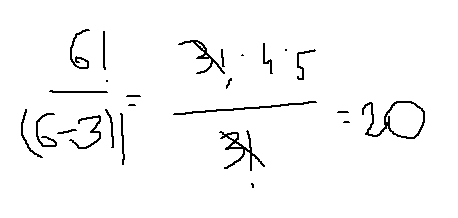 6!/(6-3)! = 3! · 4 · 5/3! = 20